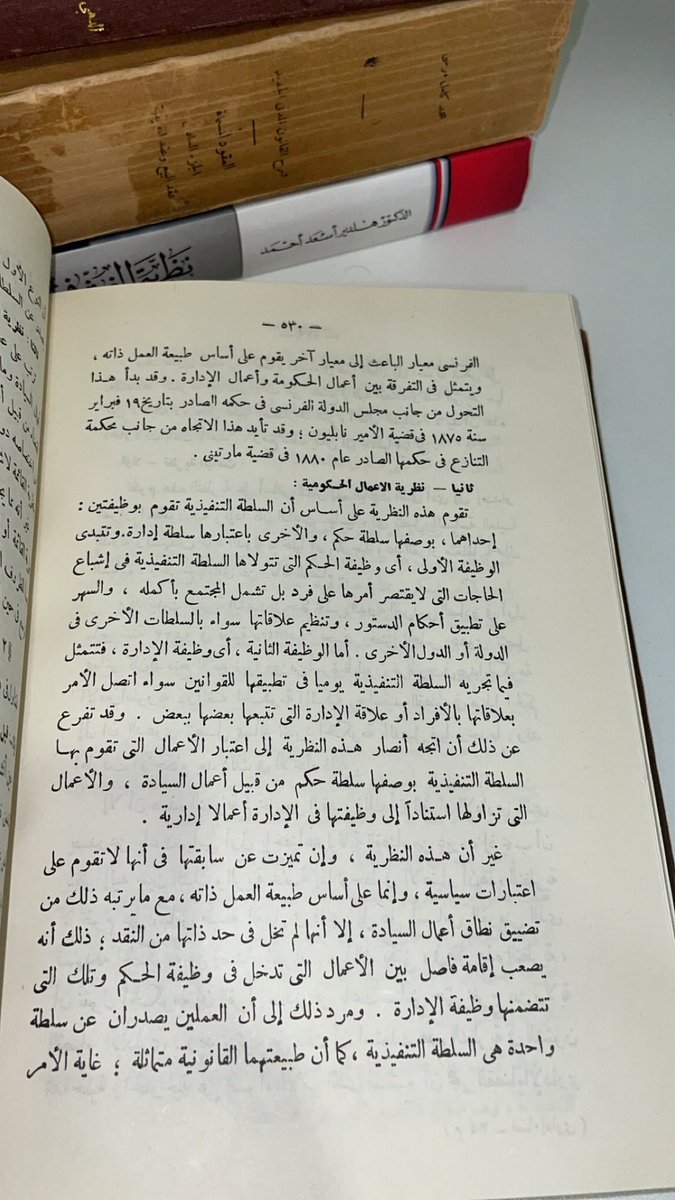 الدكتور هلدير أسعد أحمد
— ٥٣٠ —
الفرنسى معيار الباعث إلى معيار آخر يقوم على أساس طبيعة العمل ذاته ،
ويتمثل فى التفرقة بين أعمال الحكومة وأعمال الإدارة . وقد بدأ هذا
التحول من جانب مجلس الدولة الفرنسى فى حكمه الصادر بتاريخ ١٩ فبراير
سنة ١٨٧٥ فى قضية الأمير نابليون ؛ وقد تأيد هذا الاتجاه من جانب محكمة
التنازع فى حكمها الصادر عام ١٨٨٠ فى قضية مارتينى .
ثانيا — نظرية الأعمال الحكومية :
تقوم هذه النظرية على أساس أن السلطة التنفيذية تقوم بوظيفتين :
إحداهما ، بوصفها سلطة حكم ، والأخرى باعتبارها سلطة إدارة . وتتبدى
الوظيفة الأولى ، أى وظيفة الحكم التى تتولاها السلطة التنفيذية فى إشباع
الحاجات التى لايقتصر أمرها على فرد بل تشمل المجتمع بأكمله ، والسهر
على تطبيق أحكام الدستور ، وتنظيم علاقاتها سواء بالسلطات الأخرى فى
الدولة أو الدول الأخرى . أما الوظيفة الثانية ، أى وظيفة الإدارة ، فتتمثل
فيما تجريه السلطة التنفيذية يوميا فى تطبيقها للقوانين سواء اتصل الأمر
بعلاقاتها بالأفراد أو علاقة الإدارة التى تتبعها بعضها ببعض . وقد تفرع
عن ذلك أن اتجه أنصار هذه النظرية إلى اعتبار الأعمال التى تقوم بها
السلطة التنفيذية بوصفها سلطة حكم من قبيل أعمال السيادة ، والأعمال
التى تزاولها استناداً إلى وظيفتها فى الإدارة أعمالا إدارية .
غير أن هذه النظرية ، وإن تميزت عن سابقتها فى أنها لاتقوم على
اعتبارات سياسية ، وإنما على أساس طبيعة العمل ذاته ، مع مايرتبه ذلك من
تضييق نطاق أعمال السيادة ، إلا أنها لم تخل فى حد ذاتها من النقد ؛ ذلك أنه
يصعب إقامة فاصل بين الأعمال التى تدخل فى وظيفة الحكم وتلك التى
تتضمنها وظيفة الإدارة . ومرد ذلك إلى أن العملين يصدران عن سلطة
واحدة هى السلطة التنفيذية ، كما أن طبيعتهما القانونية متماثلة ؛ غاية الأمر